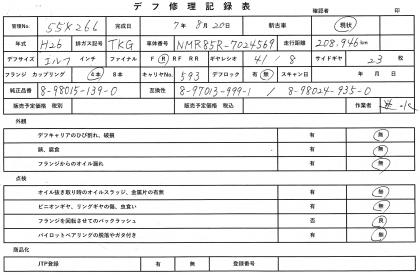 デフ修理記録表
確認者 印
管理No. 55X266 完成日 7年 8月20日 新古車 現状
年式 H26 排ガス記号 TKG 車体番号 NMR85R-7024569 走行距離 208.946km
デフサイズ インチ ファイナル F R RF RR ギヤレシオ 41/8 サイドギヤ 23 枚
フランジ カップリング 4本 8本 キャリヤNo. 593 デフロック 有 無 スキャン日 年 月 日
純正品番 8-98015-139-0 互換性 8-97013-999-1 / 8-98024-935-0
販売予定価格 税別 販売予定価格 税込 作業者
外観
デフキャリアのひび割れ、破損 有 無
錆、腐食 有 無
フランジからのオイル漏れ 有 無
点検
オイル抜き取り時のオイルスラッジ、金属片の有無 有 無
ピニオンギヤ、リングギヤの傷、虫食い 有 無
フランジを回転させてのバックラッシュ 否 良
パイロットベアリングの脱落やガタ付き 有 無
商品化
JTP登録 有 無 登録番号